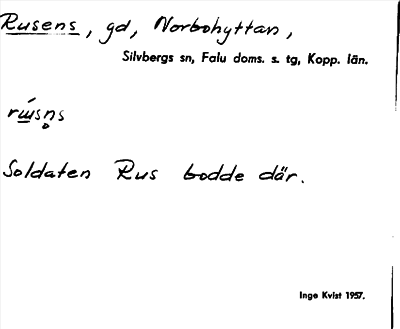 Rusens, gd, Norbohyttan,
Silvbergs sn, Falu doms. s. tg, Kopp. län.
Soldaten Rus bodde där.
Inge Kvist 1957.